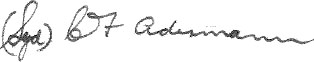 (Sgd) C F Adermann